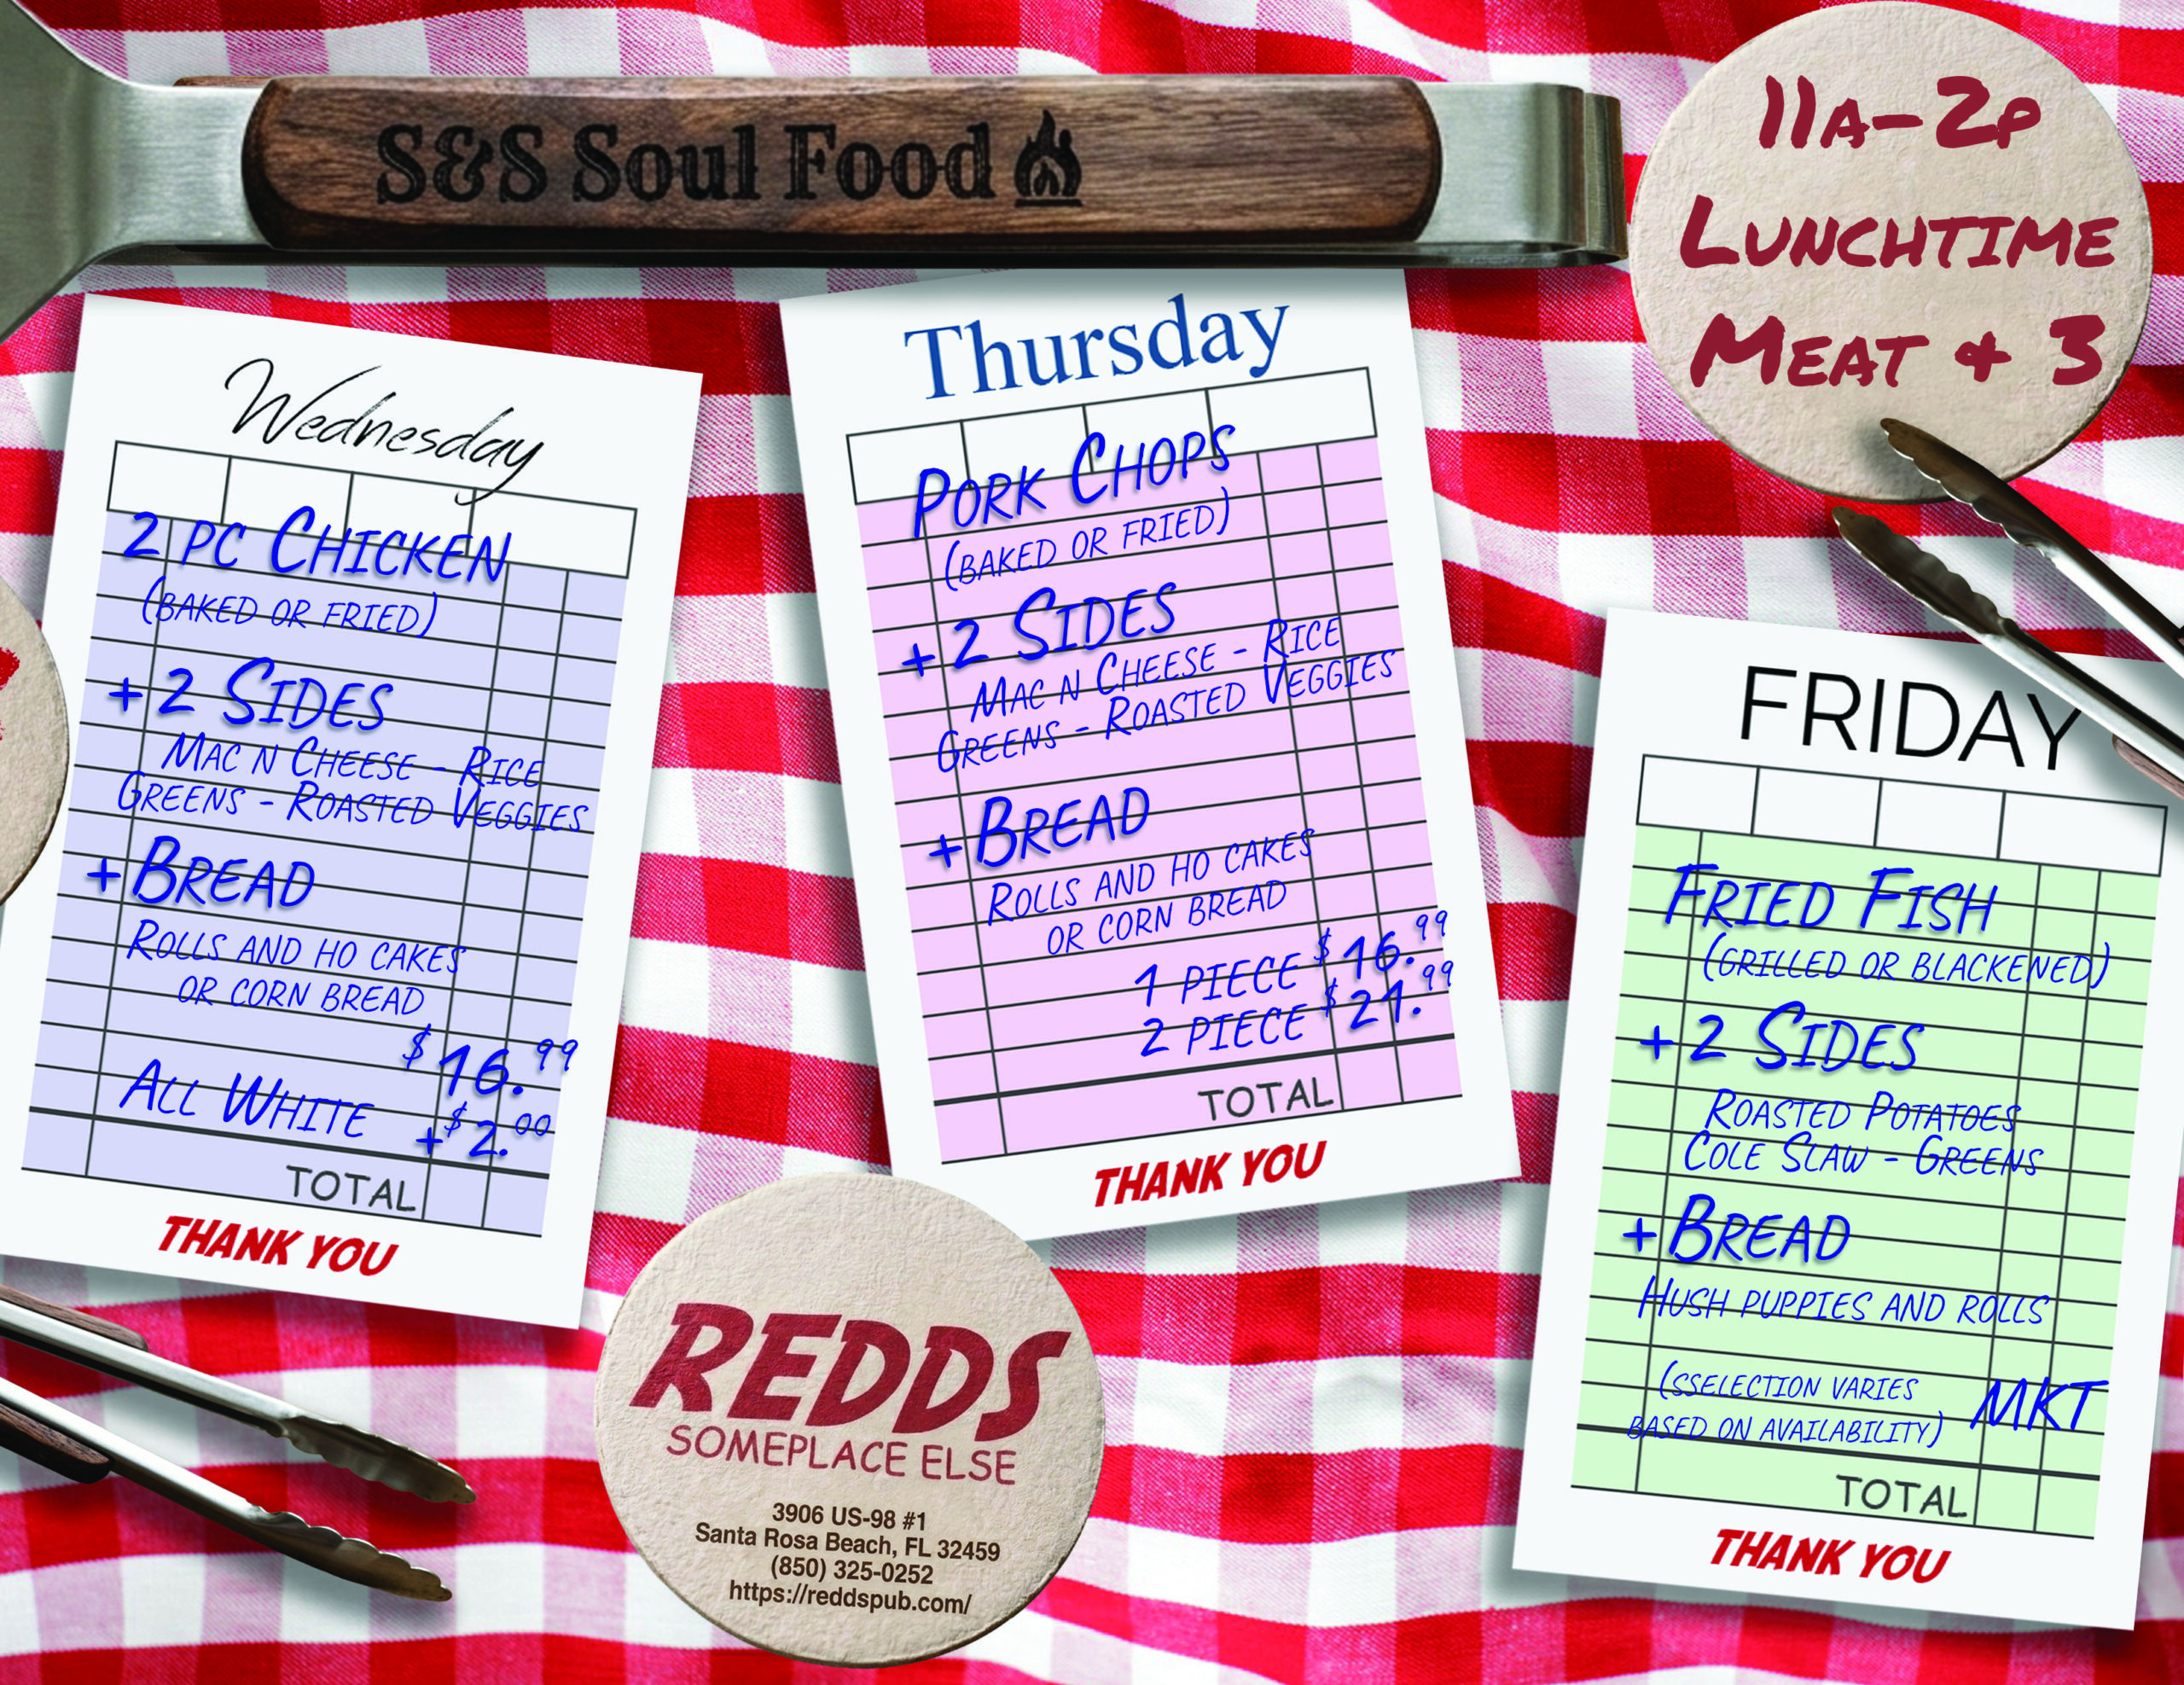 S&S Soul Food
11A-2P
LUNCHTIME
MEAT & 3
Wednesday
2 PC CHICKEN
(BAKED OR FRIED)
+ 2 SIDES
MAC N CHEESE - RICE
GREENS - ROASTED VEGGIES
+ BREAD
ROLLS AND HO CAKES
OR CORN BREAD
$16.99
ALL WHITE +$2.00
TOTAL
THANK YOU
Thursday
PORK CHOPS
(BAKED OR FRIED)
+ 2 SIDES
MAC N CHEESE - RICE
GREENS - ROASTED VEGGIES
+ BREAD
ROLLS AND HO CAKES
OR CORN BREAD
1 PIECE $16.99
2 PIECE $21.99
TOTAL
THANK YOU
FRIDAY
FRIED FISH
(GRILLED OR BLACKENED)
+ 2 SIDES
ROASTED POTATOES
COLE SLAW - GREENS
+ BREAD
HUSH PUPPIES AND ROLLS
(SSELECTION VARIES
BASED ON AVAILABILITY) MKT
TOTAL
THANK YOU
REDDS
SOMEPLACE ELSE
3906 US-98 #1
Santa Rosa Beach, FL 32459
(850) 325-0252
https://reddspub.com/